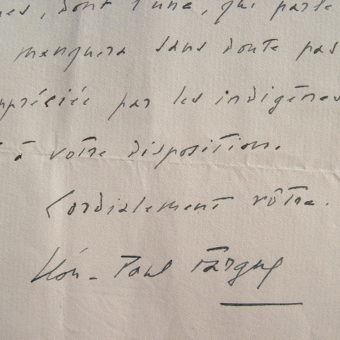 es, dont l'une, qui parle
manquera sans doute pas
appréciée par les indigènes
à votre disposition.
Cordialement vôtre.
Léon-Paul Fargue